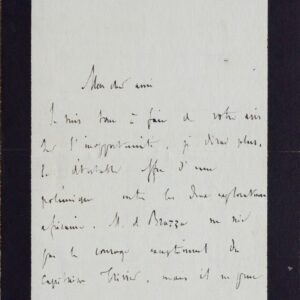 Mon cher ami
Je suis tout à fait de votre avis
sur l'inopportunité, je dirai plus,
le détestable effet d'une
polémique entre les deux explorateurs
africains. M. de Brazza ne nie
pas le courage exceptionnel du
Capitaine, mais il ne